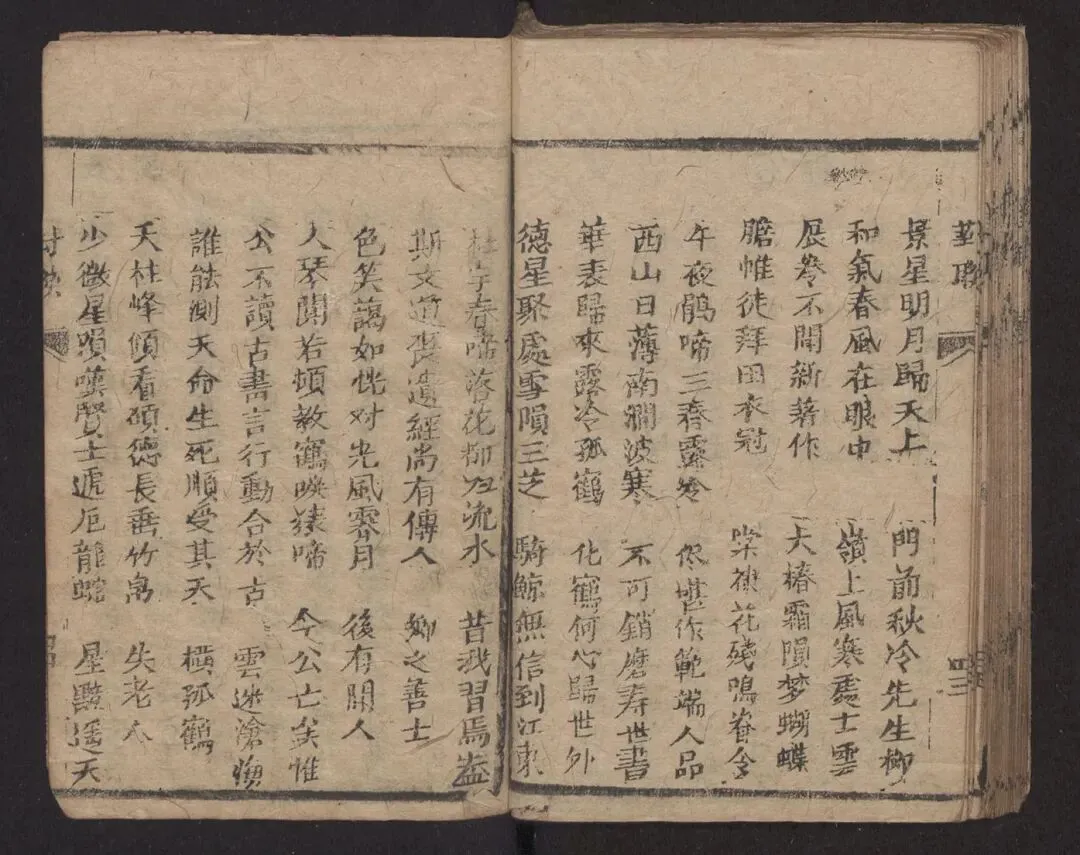 景星明月歸天上 門前秋冷先生柳
和氣春風在眼中 嶺上風寒處士雲
展卷不聞新著作 大椿霜隕梦蝴蝶
瞻惟徒拜旧衣冠 棠棣花殘鳴脊令
午夜鵑啼三春露冷 供堪作範端人品
西山日薄南澗波寒 不可銷磨寿世書
華表歸來露冷孤鶴 化鶴何心歸世外
德星聚處雪隕三芝 騎鯨無信到江東
杜宇春啼落花柳 流水 昔我習焉益
斯文道喪遺經尚有傳人 鄉之善士
色笑藹如恍对光風霽月 後有開人
人琴闃若頓教鶴唳猿啼 今公亡矣惟
公不讀古書言行動合於古 雲迷滄海
誰能測天命生死順受其天 橫孤鶴
天柱峰傾看碩德長垂竹帛 失老人
少微星隕嘆賢士遞厄龍蛇 星黯遥天